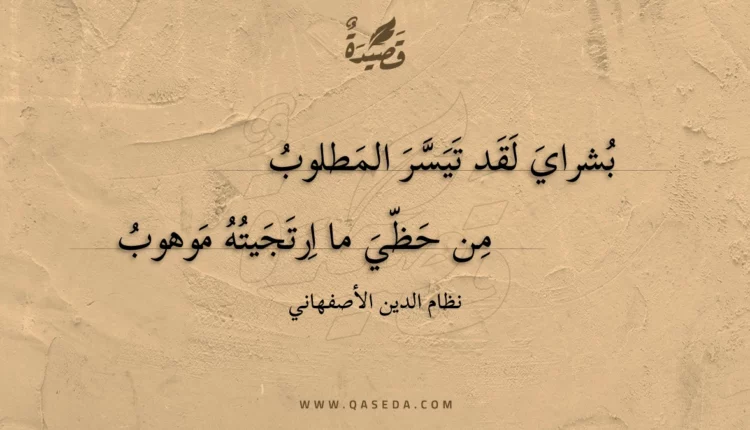 قَصِيدَةٌ
بُشرايَ لَقَد تَيَسَّرَ المَطلوبُ
مِن حَظّيَ ما اِرتَجَيتُهُ مَوهوبُ
نظام الدين الأصفهاني
WWW.QASEDA.COM